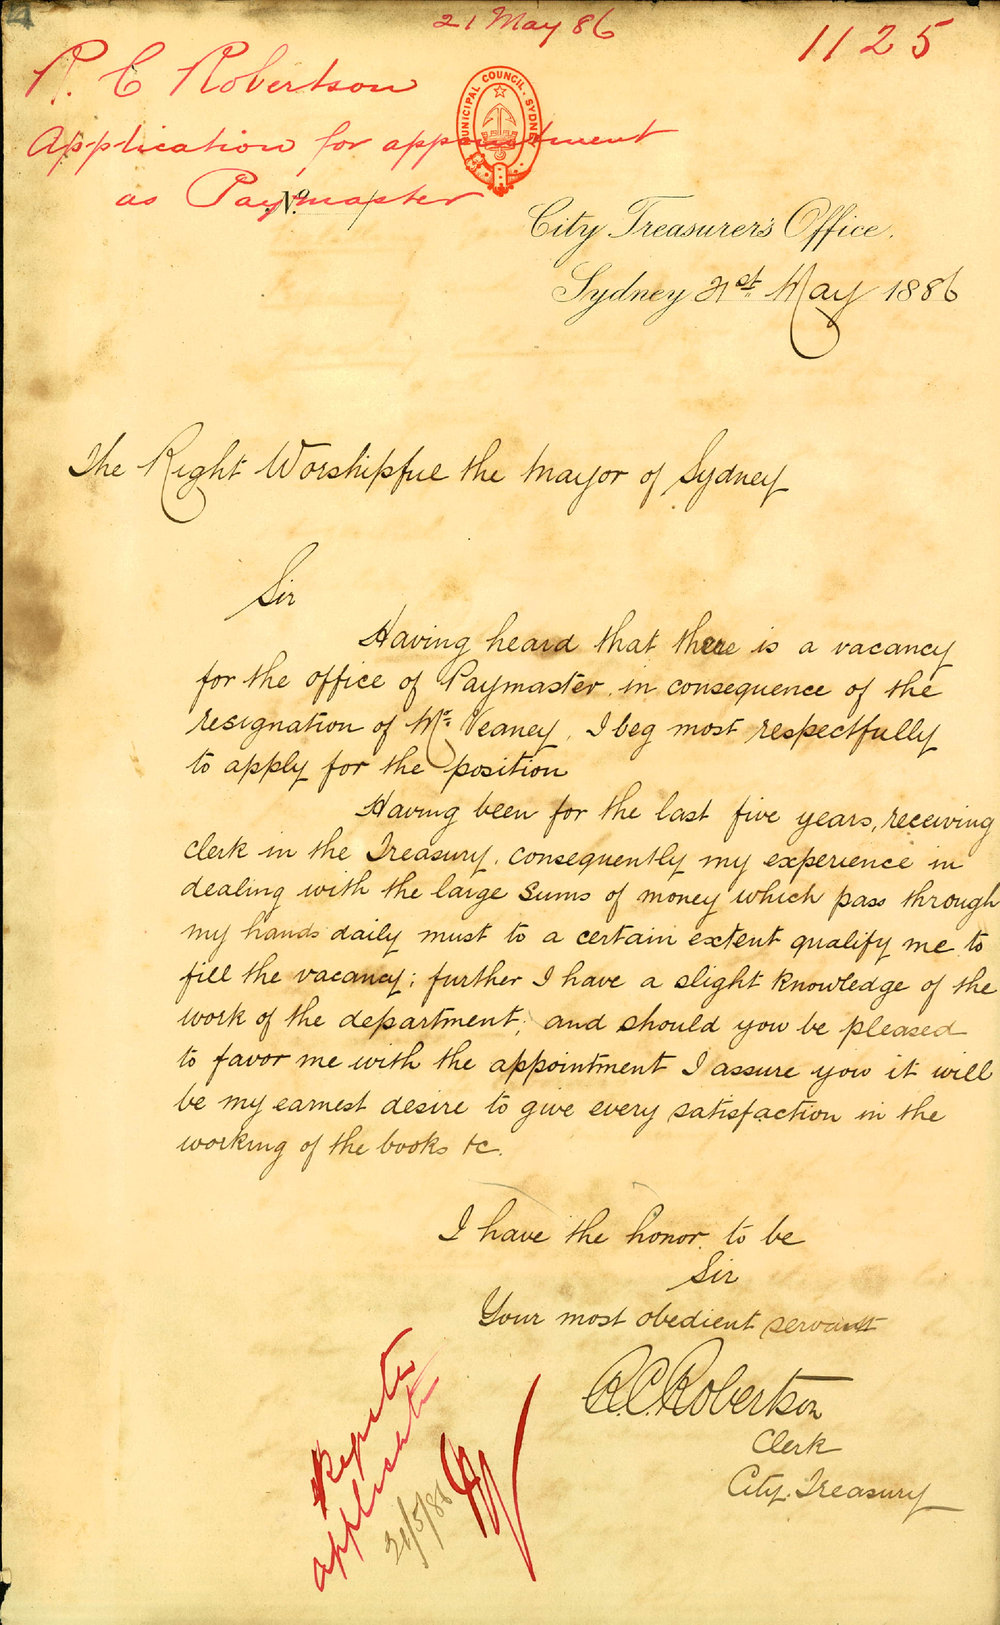 21 May 86
1125
R. C Robertson
Application for appointment
as Paymaster
No.
MUNICIPAL COUNCIL. SYDNEY
City Treasurer's Office.
Sydney 21st. May 1886
The Right Worshipful the Mayor of Sydney
Sir
Having heard that there is a vacancy
for the office of Paymaster, in consequence of the
resignation of Mr. Veaney, I beg most respectfully
to apply for the position
Having been for the last five years, receiving
clerk in the Treasury, consequently my experience in
dealing with the large sums of money which pass through
my hands daily must to a certain extent qualify me to
fill the vacancy; further I have a slight knowledge of the
work of the department; and should you be pleased
to favor me with the appointment I assure you it will
be my earnest desire to give every satisfaction in the
working of the books &c.
I have the honor to be
Sir
Your most obedient servant
R.C. Robertson
Clerk
City Treasury
21/5/86